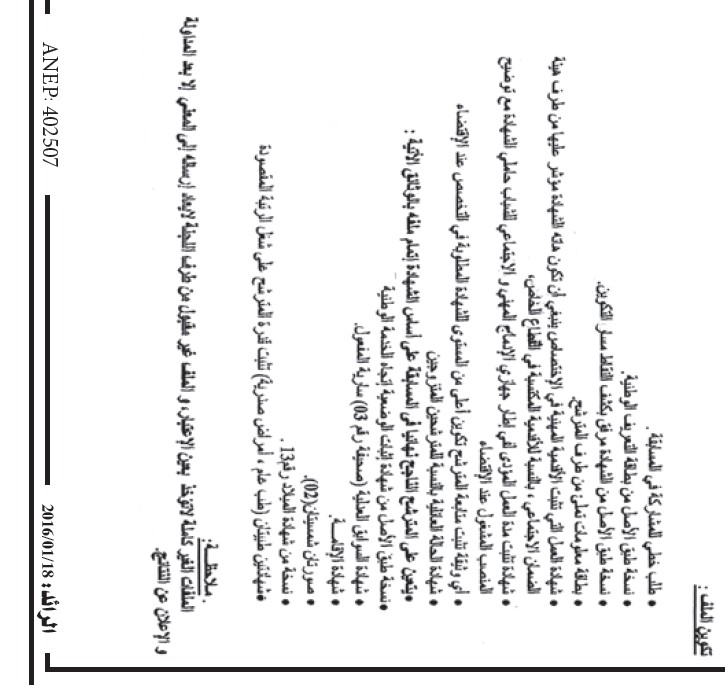 تكوين الملف :
• طلب خطي للمشاركة في المسابقة .
• نسخة طبق الأصل من بطاقة التعريف الوطنية.
• نسخة طبق الأصل من الشهادة مرفق بكشف النقاط مسار التكوين.
• بطاقة معلومات تملئ من طرف المترشح.
• شهادة العمل التي تثبت الأقدمية المهنية في الإختصاص ينبغي أن تكون هاته الشهادة مؤشر عليها من طرف هيئة
الضمان الاجتماعي ، بالنسبة للأقدمية المكتسبة في القطاع الخاص،
• شهادة تثبت مدة العمل المؤدى افي إطار جهازي الإدماج المهني و الاجتماعي للشباب حاملي الشهادة مع توضيح
المنصب المشغول عند الإقتضاء
• أي وثيقة تثبت متابعة المترشح تكوين أعلى من المستوى للشهادة المطلوبة في التخصص عند الإقتضاء
• شهادة الحالة العائلية بالنسبة للمترشحين المتزوجين
•يتعين على المترشح الناجح نهائيا في المسابقة على أساس الشهادة إتمام ملفه بالوثائق الآتية :
•نسخة طبق الأصل من شهادة إثبات الوضعية إتجاه الخدمة الوطنية
• شهادة السوابق العدلية (صحيفة رقم 03) سارية المفعول.
• شهادة الإقامــة.
• صورتان شمسيتان(02).
• نسخة من شهادة الميلاد رقم13 .
•شهادتين طبيتان (طب عام ، أمراض صدرية) تثبت قدرة المترشح على شغل الرتبة المقصودة
.ملاحظــة:
الملفات الغير كاملة لاتوخذ بعين الإعتبار، و الملف غير مقبول من طرف اللجنة لايعاد إرساله إلى المعني إلا بعد المداولة
و الإعلان عن النتائج.
الرائد: 2016/01/18
ANEP: 402507